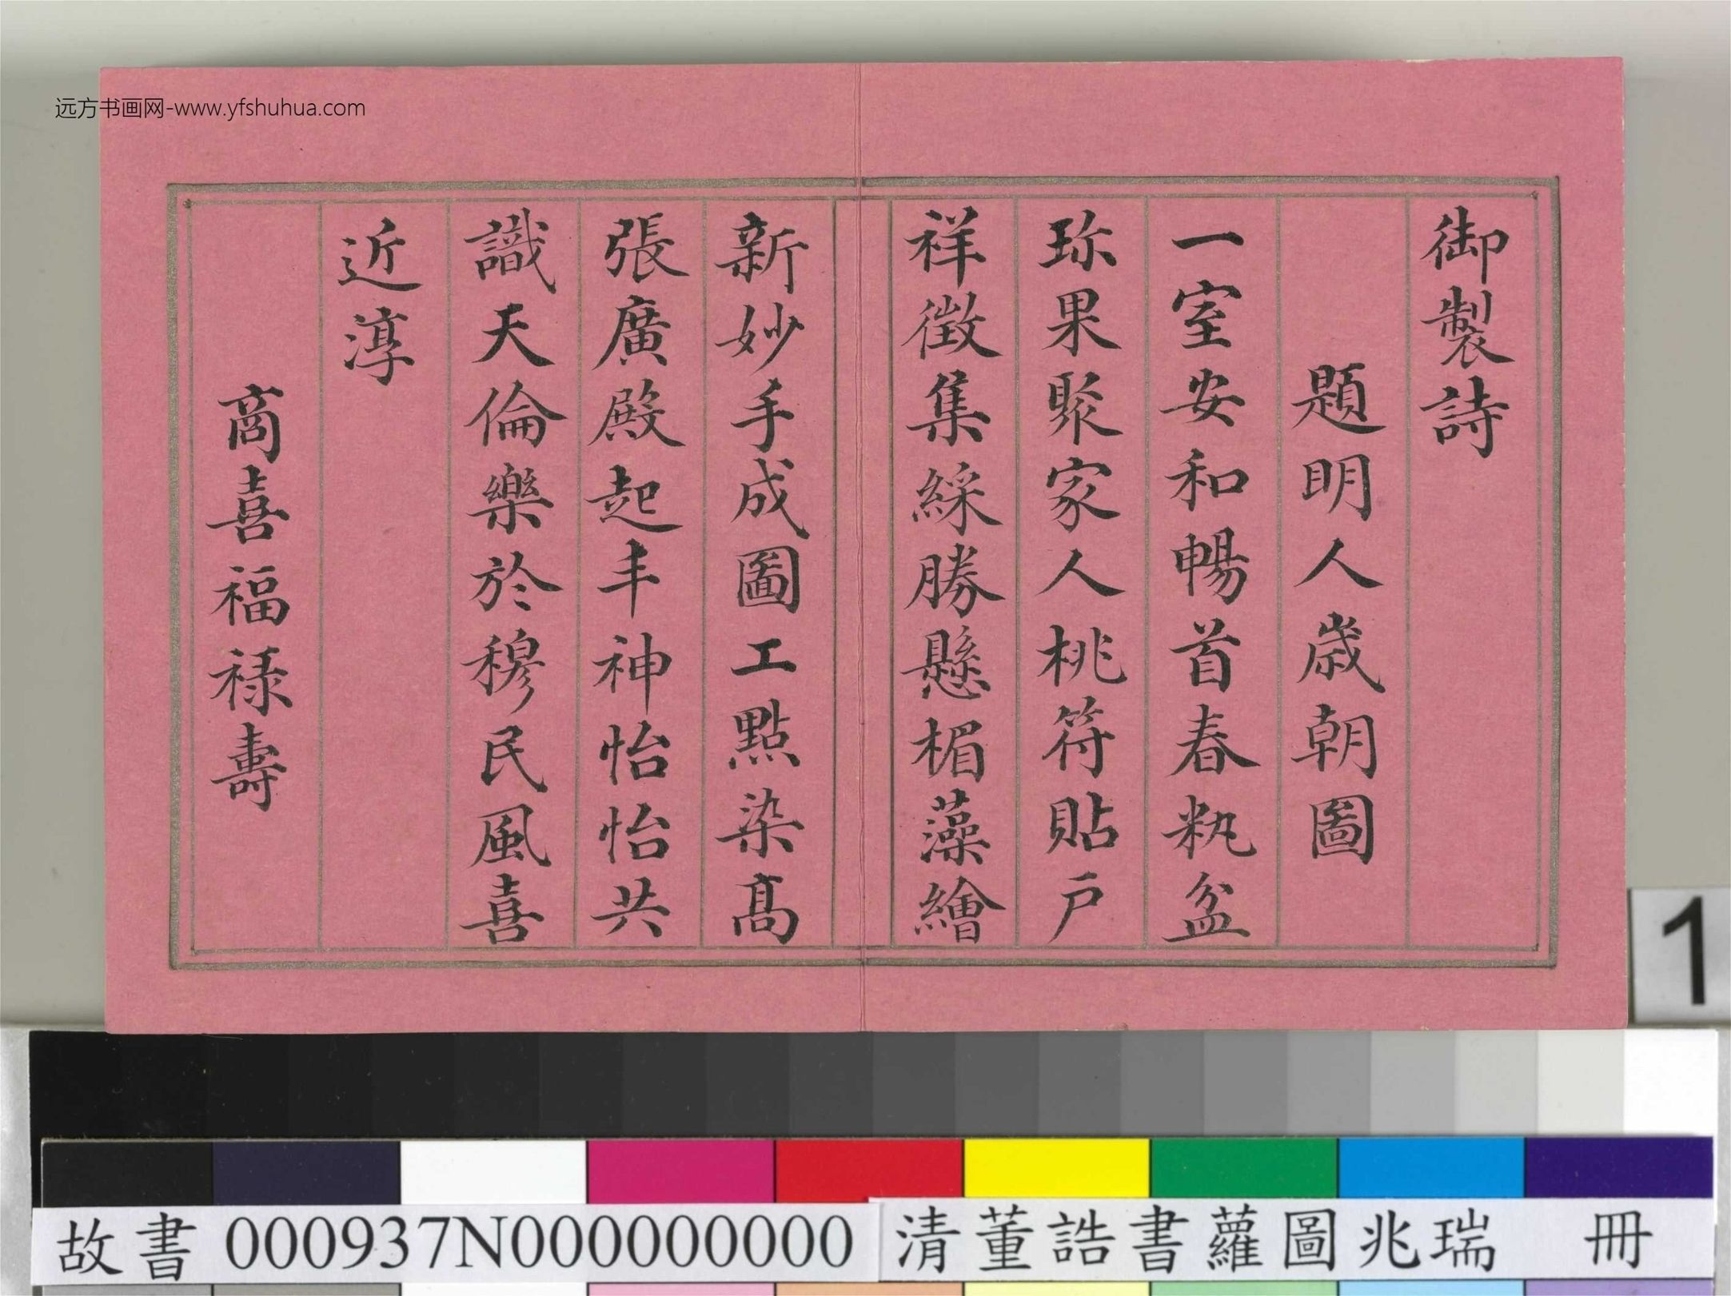 远方书画网-www.yfshuhua.com
御製詩
題明人歲朝圖
一室安和暢首春籸盆
珎果聚家人桃符貼戶
祥徵集綵勝懸楣藻繪
新妙手成圖工點染髙
張廣殿起丰神怡怡共
識天倫樂於穆民風喜
近淳
商喜福祿壽
1
故書 000937N000000000 清董誥書蘿圖兆瑞 冊